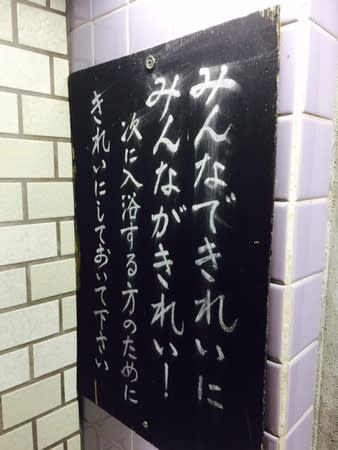 みんなできれいに
みんながきれい!
次に入浴する方のために
きれいにしておいて下さい